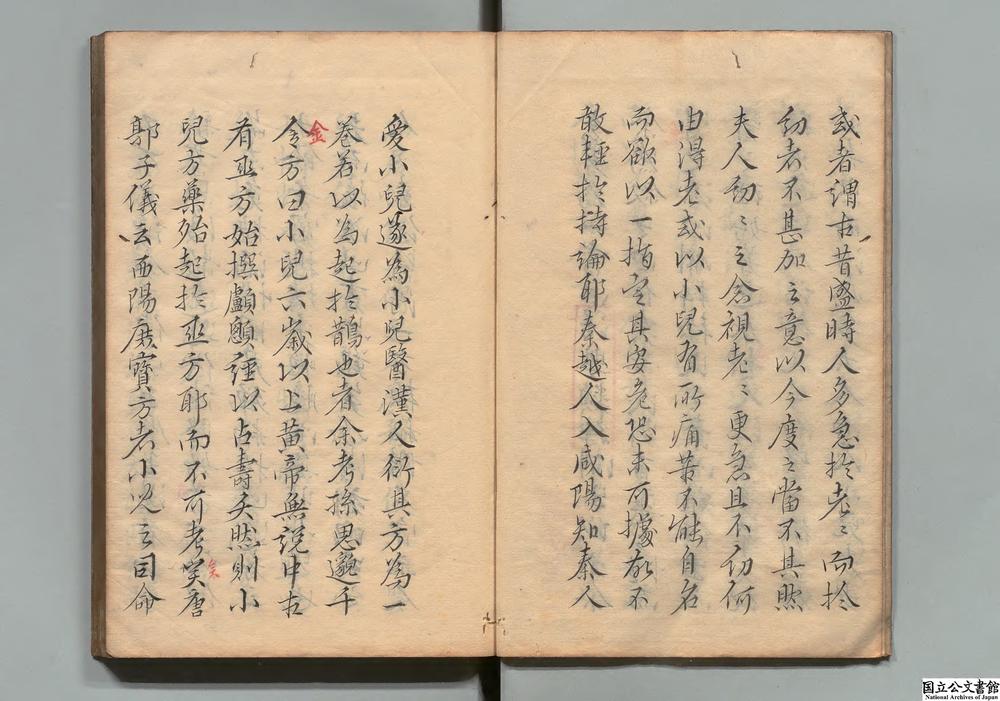 或者謂古昔盛時人多急於老〻而於
幼者不甚加之意以今度之當不其然
夫人幼〻之念視老〻更急且不幼何
由得老或以小兒有所痛苦不能自名
而欲以一指定其安危恐未可據故不
敢輕於持論耶秦越人入咸陽知秦人
愛小兒遂為小兒醫漢人衍其方為一
卷若以為起於鵲也者余考孫思邈千
金
令方曰小兒六歲以上黃帝無說中古
有巫方始撰顱顖經以占壽夭然則小
兒方藥殆起於巫方耶而不可考矣唐
矣
郭子儀云西陽廣寶方者小兒之司命
国立公文書館
National Archives of Japan